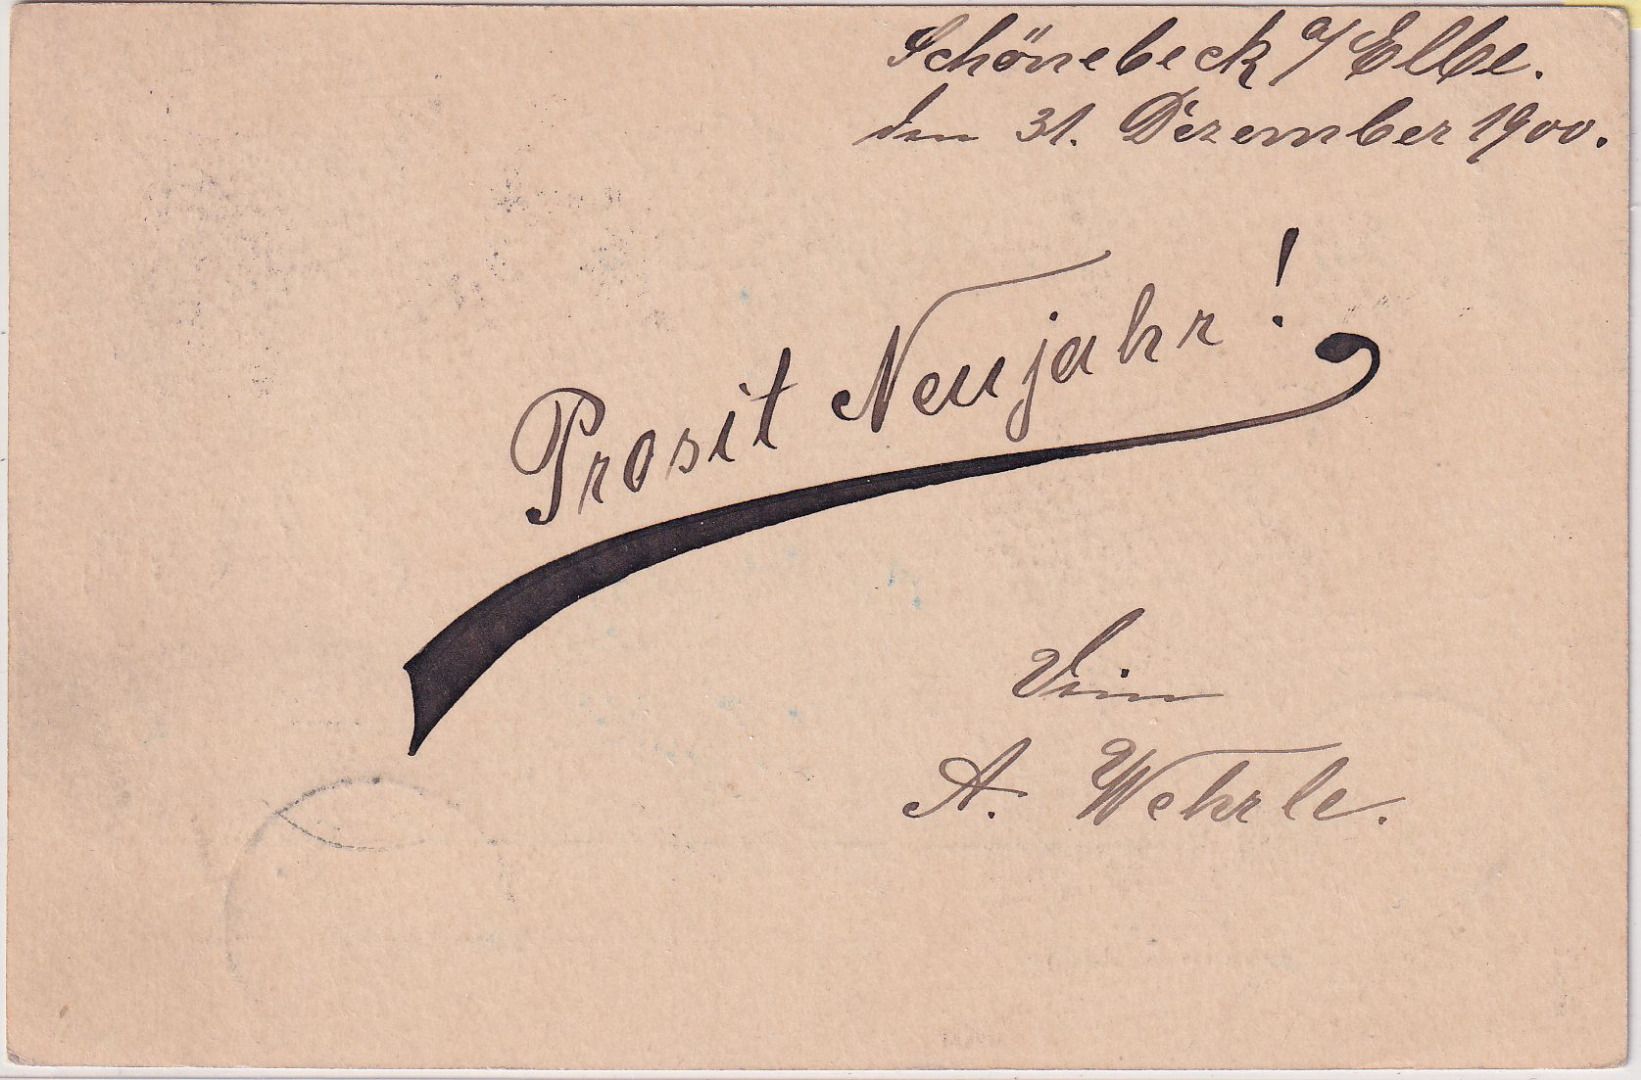 Schönebeck a/Elbe.
den 31. Dezember 1900.
Prosit Neujahr!
Dein
A. Wehrle.